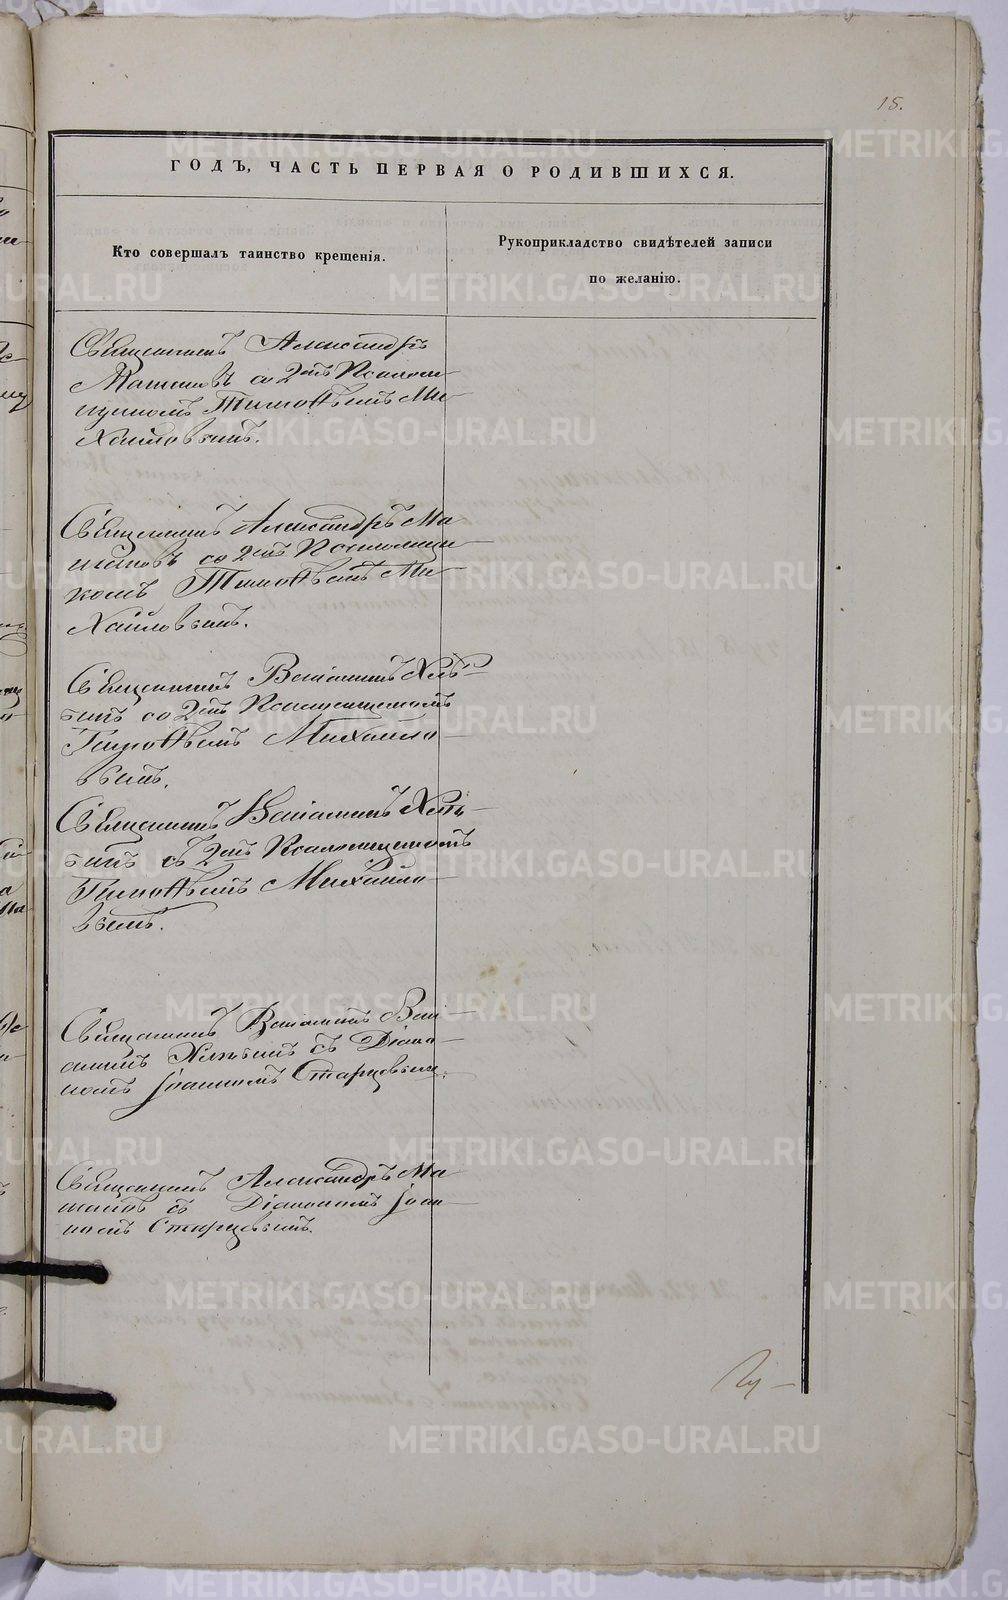 15.
ГОДЪ, ЧАСТЬ ПЕРВАЯ О РОДИВШИХСЯ.
Кто совершалъ таинство крещенія.
Рукоприкладство свидѣтелей записи
по желанію.
Священникъ Александръ
со 2мъ Псаломщ
икомъ Тимоѳеемъ Ми
хайловымъ.
Священникъ Александръ Ма
со 2мъ Псаломщи
комъ Тимоѳеемъ Ми
хайловымъ.
Священникъ Веніаминъ Хлѣ
бинъ со 2мъ Псаломщикомъ
Тимоѳеемъ Михайло
вымъ.
Священникъ Веніаминъ Хлѣ
бинъ съ 2мъ Псаломщикомъ
Тимоѳеемъ Михайло
вымъ.
Священникъ Веніаминъ Вені
аминъ Хлѣбинъ съ Діако
номъ Іоанномъ Старцевымъ.
Священникъ Александръ Ма
съ Діакономъ Іоан
номъ Старцевымъ.
METRIKI.GASO-URAL.RU